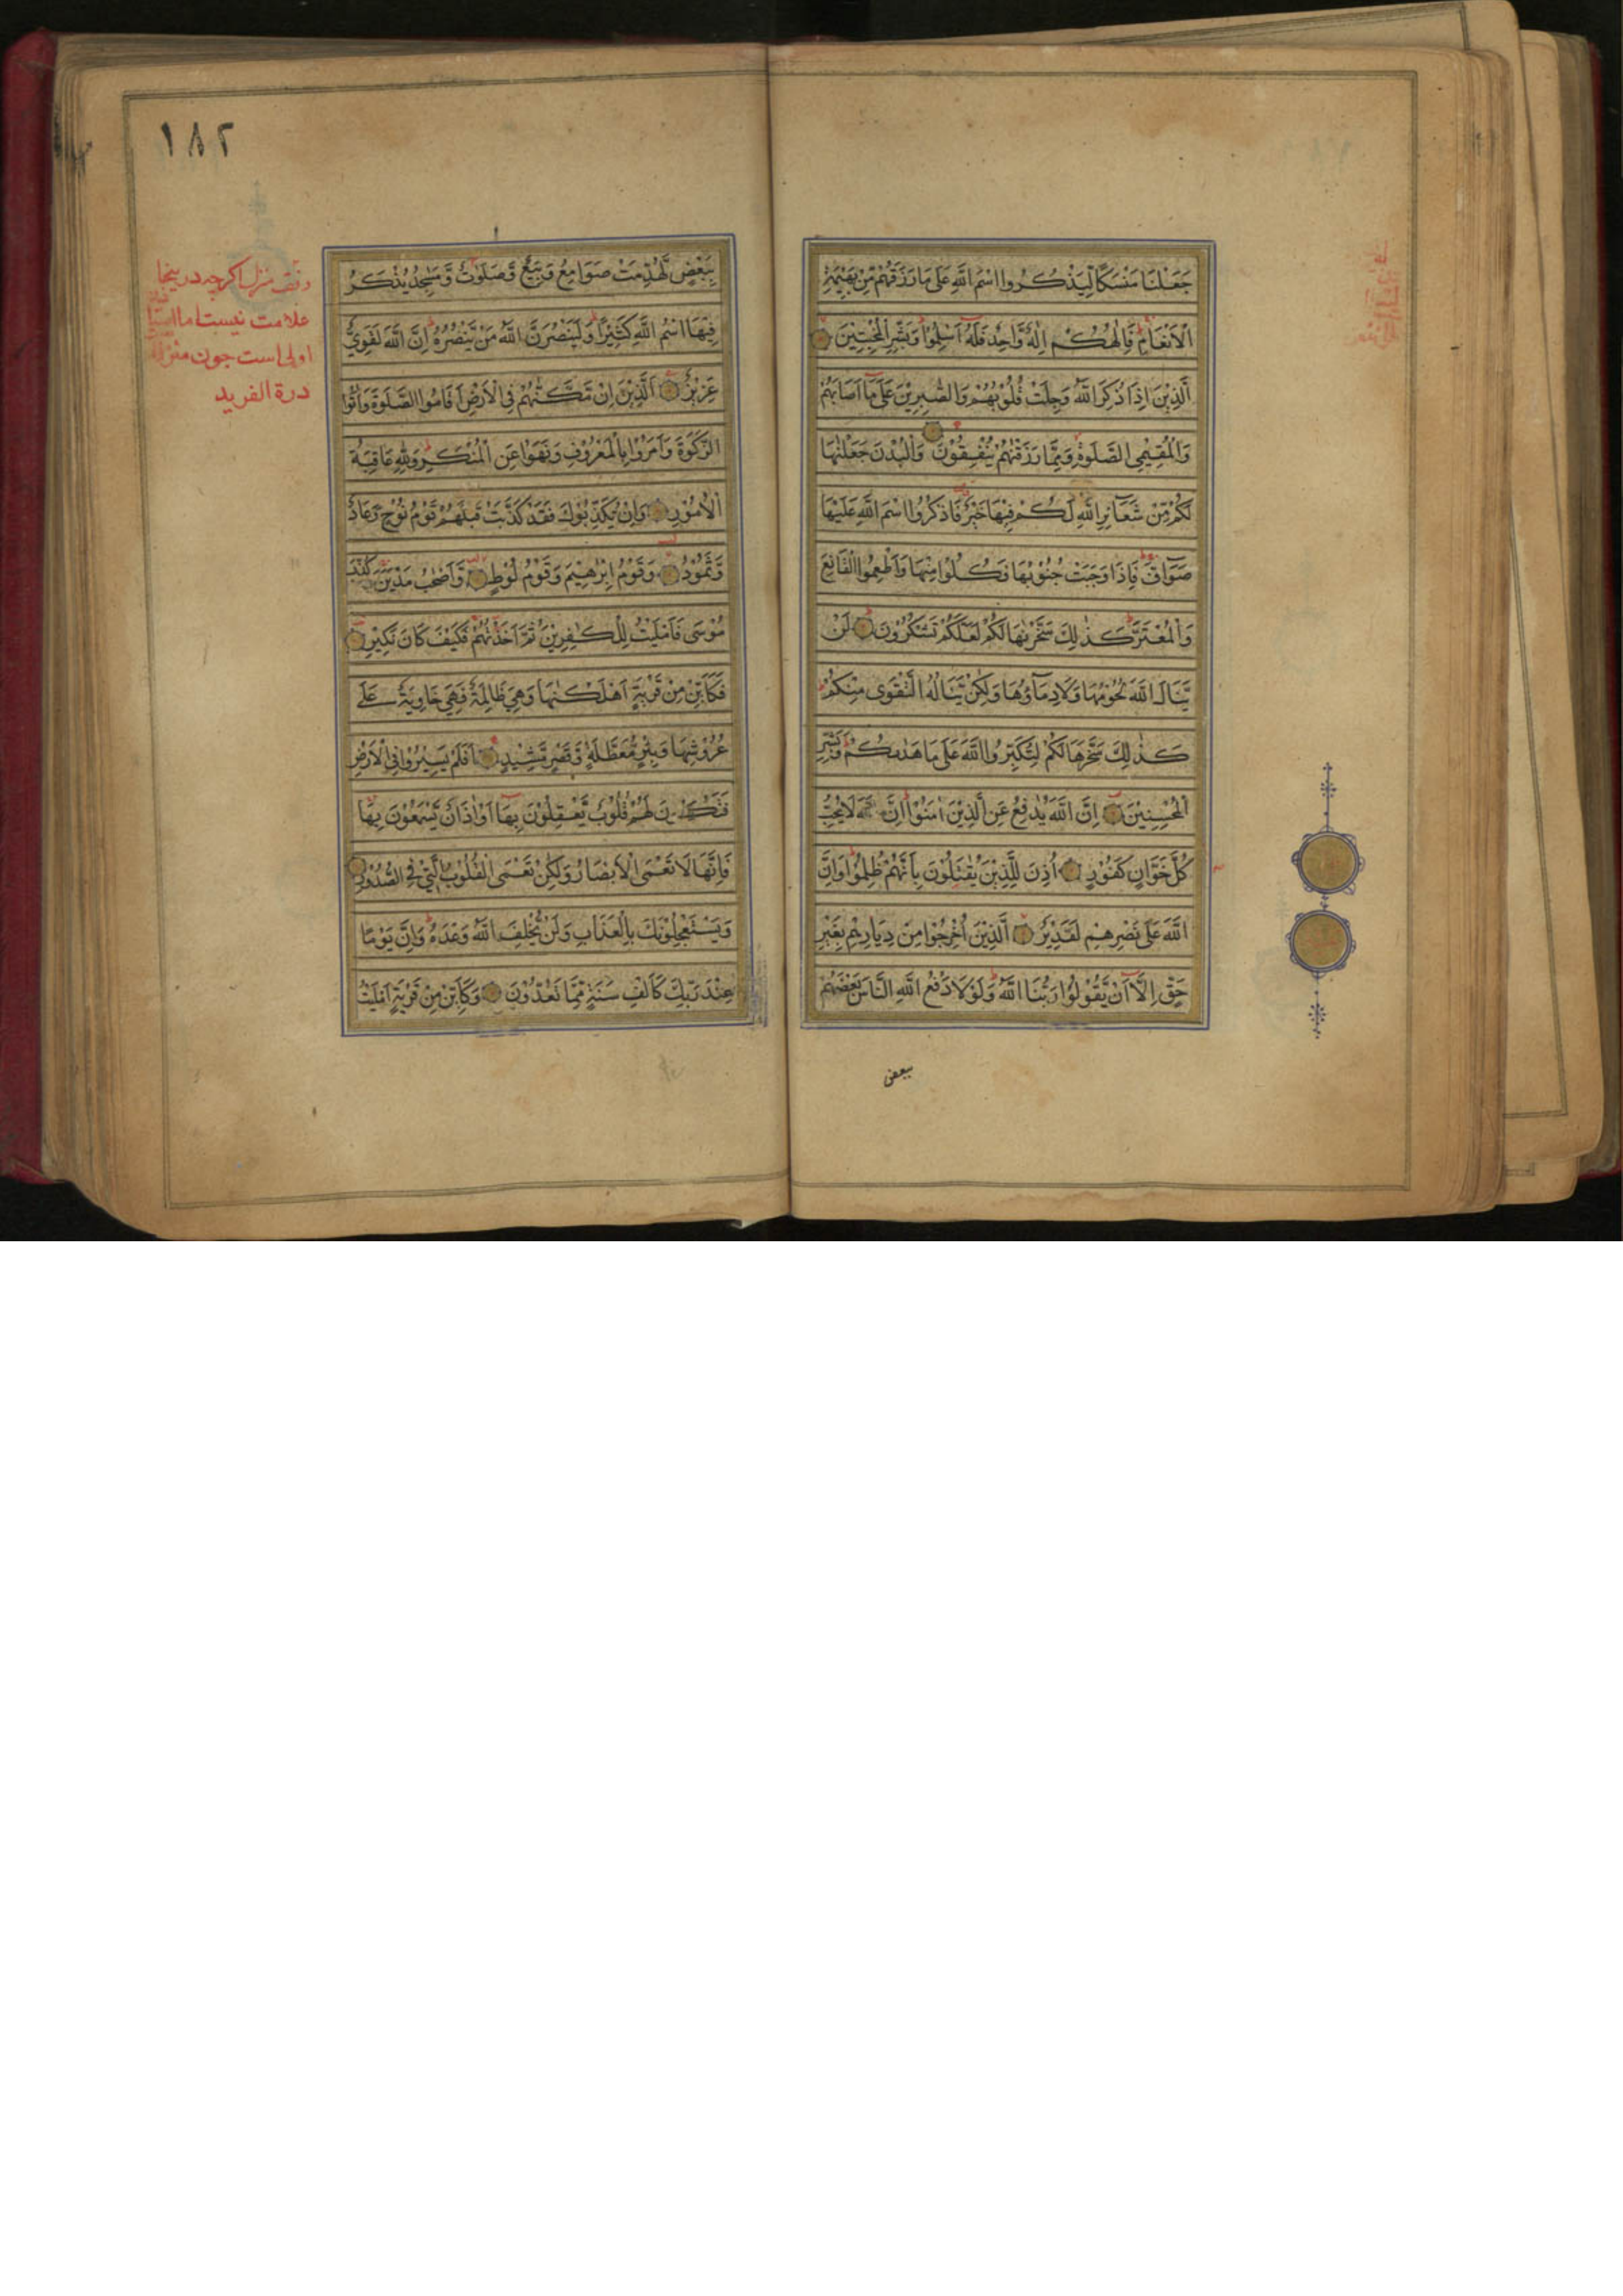 جَعَلْنَا مَنْسَكًا لِيَذْكُرُوا اسْمَ اللَّهِ عَلَى مَا رَزَقَهُمْ مِنْ بَهِيمَةِ
الْأَنْعَامِ فَإِلٰهُكُمْ إِلٰهٌ وَاحِدٌ فَلَهُ أَسْلِمُوا وَبَشِّرِ الْمُخْبِتِينَ
الَّذِينَ إِذَا ذُكِرَ اللَّهُ وَجِلَتْ قُلُوبُهُمْ وَالصّٰبِرِينَ عَلَى مَا أَصَابَهُمْ
وَالْمُقِيمِي الصَّلٰوةِ وَمِمَّا رَزَقْنٰهُمْ يُنْفِقُونَ وَالْبُدْنَ جَعَلْنٰهَا
لَكُمْ مِنْ شَعَآئِرِ اللَّهِ لَكُمْ فِيهَا خَيْرٌ فَاذْكُرُوا اسْمَ اللَّهِ عَلَيْهَا
صَوَآفَّ فَإِذَا وَجَبَتْ جُنُوبُهَا فَكُلُوا مِنْهَا وَأَطْعِمُوا الْقَانِعَ
وَالْمُعْتَرَّ كَذٰلِكَ سَخَّرْنٰهَا لَكُمْ لَعَلَّكُمْ تَشْكُرُونَ لَنْ
يَنَالَ اللَّهَ لُحُومُهَا وَلَا دِمَآؤُهَا وَلٰكِنْ يَنَالُهُ التَّقْوَى مِنْكُمْ
كَذٰلِكَ سَخَّرَهَا لَكُمْ لِتُكَبِّرُوا اللَّهَ عَلَى مَا هَدٰىكُمْ وَبَشِّرِ
الْمُحْسِنِينَ إِنَّ اللَّهَ يُدٰفِعُ عَنِ الَّذِينَ اٰمَنُوا إِنَّ اللَّهَ لَا يُحِبُّ
كُلَّ خَوَّانٍ كَفُورٍ أُذِنَ لِلَّذِينَ يُقٰتَلُونَ بِأَنَّهُمْ ظُلِمُوا وَإِنَّ
اللَّهَ عَلَى نَصْرِهِمْ لَقَدِيرٌ الَّذِينَ أُخْرِجُوا مِنْ دِيَارِهِمْ بِغَيْرِ
حَقٍّ إِلَّا أَنْ يَقُولُوا رَبُّنَا اللَّهُ وَلَوْلَا دَفْعُ اللَّهِ النَّاسَ بَعْضَهُمْ
ببعض
١٨٢
بِبَعْضٍ لَهُدِّمَتْ صَوَامِعُ وَبِيَعٌ وَصَلَوٰتٌ وَمَسٰجِدُ يُذْكَرُ
فِيهَا اسْمُ اللَّهِ كَثِيرًا وَلَيَنْصُرَنَّ اللَّهُ مَنْ يَنْصُرُهُ إِنَّ اللَّهَ لَقَوِيٌّ
عَزِيزٌ الَّذِينَ إِنْ مَكَّنّٰهُمْ فِي الْأَرْضِ أَقَامُوا الصَّلٰوةَ وَاٰتَوُا
الزَّكٰوةَ وَأَمَرُوا بِالْمَعْرُوفِ وَنَهَوْا عَنِ الْمُنْكَرِ وَلِلَّهِ عَاقِبَةُ
الْأُمُورِ وَإِنْ يُكَذِّبُوكَ فَقَدْ كَذَّبَتْ قَبْلَهُمْ قَوْمُ نُوحٍ وَعَادٌ
وَثَمُودُ وَقَوْمُ إِبْرٰهِيمَ وَقَوْمُ لُوطٍ وَأَصْحٰبُ مَدْيَنَ وَكُذِّبَ
مُوسَى فَأَمْلَيْتُ لِلْكٰفِرِينَ ثُمَّ أَخَذْتُهُمْ فَكَيْفَ كَانَ نَكِيرِ
فَكَأَيِّنْ مِنْ قَرْيَةٍ أَهْلَكْنٰهَا وَهِيَ ظَالِمَةٌ فَهِيَ خَاوِيَةٌ عَلَى
عُرُوشِهَا وَبِئْرٍ مُعَطَّلَةٍ وَقَصْرٍ مَشِيدٍ أَفَلَمْ يَسِيرُوا فِي الْأَرْضِ
فَتَكُونَ لَهُمْ قُلُوبٌ يَعْقِلُونَ بِهَا أَوْ اٰذَانٌ يَسْمَعُونَ بِهَا
فَإِنَّهَا لَا تَعْمَى الْأَبْصَارُ وَلٰكِنْ تَعْمَى الْقُلُوبُ الَّتِي فِي الصُّدُورِ
وَيَسْتَعْجِلُونَكَ بِالْعَذَابِ وَلَنْ يُخْلِفَ اللَّهُ وَعْدَهُ وَإِنَّ يَوْمًا
عِنْدَ رَبِّكَ كَأَلْفِ سَنَةٍ مِمَّا تَعُدُّونَ وَكَأَيِّنْ مِنْ قَرْيَةٍ أَمْلَيْتُ
وقف منزل اكرچه در ينجا
علامت نيست اما
اولى است جون
درة الفريد